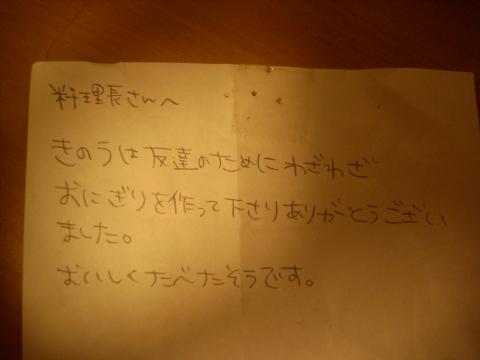 料理長さんへ
きのうは友達のためにわざわざ
おにぎりを作って下さりありがとうござい
ました。
おいしくたべたそうです。